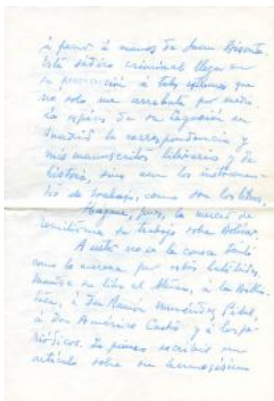 à parar à manos de Juan Bisonte.
Este sádico criminal llega en
su persecución à tales extremos que
no solo me arrebata por medio
de espías de su Legación en
Madrid la correspondencia y
mis manuscritos literarios y de
historia, sino aun los instrumen-
tos de trabajo, como son los libros.
Hágame, pues, la merced de
remitirme su trabajo sobre Bolívar.
A usted no se le conoce tanto
como lo merece por estos
Mande su libro al Ateneo, à la Biblio-
teca, à Don Ramón Menéndez Pidal,
à Don Américo Castro y à los pe-
riódicos. Yo pienso escribir un
artículo sobre su hermosísimo